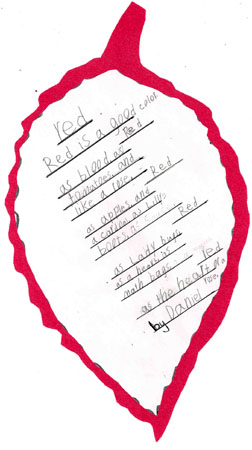 red
Red is a good color
Red
as blood as
tomatoes, and
like a rose. Red
as apples, and
a cardinal as
Red
as Lady bugs
as a hearts in
math bags. red
as the heart of a
rose.
by Daniel